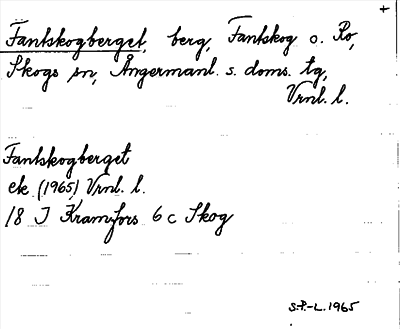 +
Fantskogberget, berg, Fantskog o. Ro,
Skogs sn, Ångermanl. s. doms. tg,
Vrnl. l.
Fantskogberget
ek. (1965) Vrnl. l.
18 J Kramfors 6 c Skog
S.P.-L. 1965